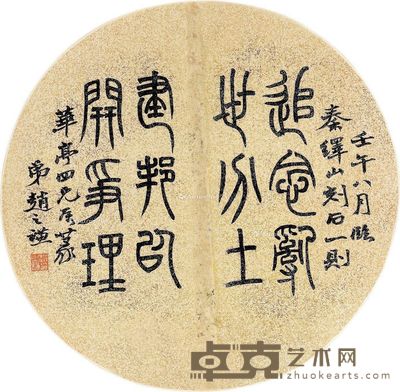 壬午八月臨
秦繹山刻石一則
追念亂
世分土
建邦以
開爭理
華亭四兄屬篆
弟趙之謙
卓克艺术网
zhuokearts.com